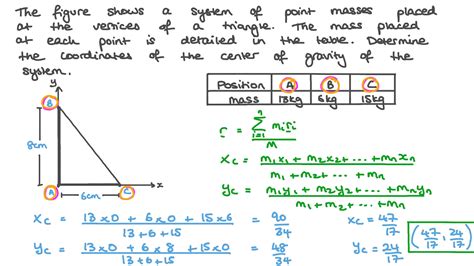 The figure shows a system of point masses placed
at the vertices of a triangle. The mass placed
at each point is detailed in the table. Determine
the coordinates of the center of gravity of the
system.
Position A B C
mass 13kg 6kg 15kg
y
B
8cm
A
6cm
C
x
r = Σ_{i=1}^{n} m_i r_i / M
x_C = (m_1x_1 + m_2x_2 + ... + m_nx_n) / (m_1 + m_2 + ... + m_n)
y_C = (m_1y_1 + m_2y_2 + ... + m_ny_n) / (m_1 + m_2 + ... + m_n)
x_C = (13×0 + 6×0 + 15×6) / (13+6+15) = 90/34 x_C = 47/17
y_C = (13×0 + 6×8 + 15×0) / (13+6+15) = 48/34 y_C = 24/17
(47/17, 24/17)